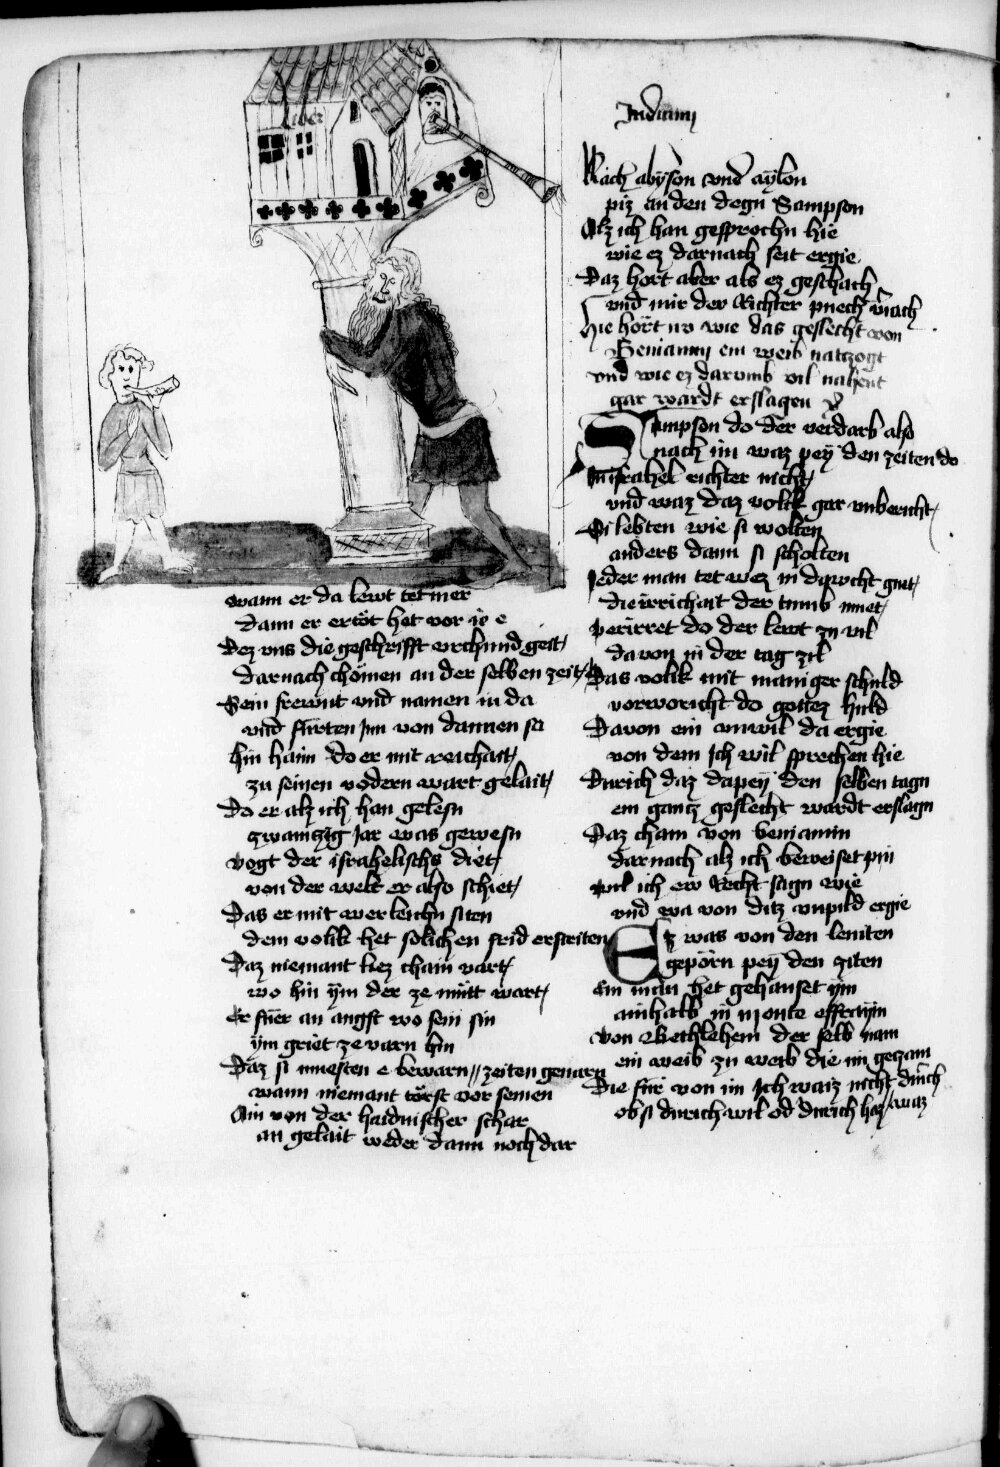 wann er da lewt tet mer
dann er ertöt het vor ie e
Dez vns die geschrifft vrchund geit
darnach chömen an der selben zeit
Sein frewnt vnd namen in da
vnd fürten jm von dannen sa
hin haim do er mit reichait
zu seinen vodern wart gelait
Do er alz ich han gelesn
zwainzig Jar was gewesn
vogt der israhelischs diet
von der welt er also schiet
Das er mit werleichn siten
dem volik het solichen frid erstriten
Daz niemant liez chain vart
wo hin ÿm der ze mütt wart
Er für an angst wo sein sin
ÿm griet ze varn hin
Daz si muesten e bewarn // zeiten genarn
wann niemant törst vor semen
Ain von der haidnischer schar
an gelait weder dann noch dar
Judicum
Nach abÿson vnd aÿlon
piz an den degn Sampson
Alz ich han gesprochn hie
wie ez darnach seit ergie
Daz hort aber als ez geschach
vnd mir der Richter puech veriach
Hie hört nv wie das geslecht von
Beniamin ein weib natzogt
vnd wie ez darumb vil nahent
gar wardt erslagen
Sampson do der verdarb also
nach im waz peÿ den zeiten do
In israhel richter nicht
vnd waz daz volik gar vnbericht
Si lebten wie si wolten
anders dann si scholten
Jeder man tet wez in dawcht guet
die irrichait der tumb muet
verirret do der lewt zu vil
davon in der tag zil
Das volik mit maniger schuld
vorworicht do gottez huld
Davon ein vnwil da ergie
von dem ich wil sprechen hie
Durich daz dapeÿ den selben tagn
ein gantz geslecht wardt erslagn
Daz cham von beniamin
darnach alz ich beweiset pin
wil ich ew Recht sagn wie
vnd wa von ditz vnpild ergie
Ez was von den leuiten
gepörn peÿ den ziten
Ein man het gehauset ÿm
ainhalb in monte effraÿm
von Bethlehem der selb nam
ein weib zu weib die im gezam
Die für von im Jch waiz nicht durch waz
ob si durich wil od durich haz